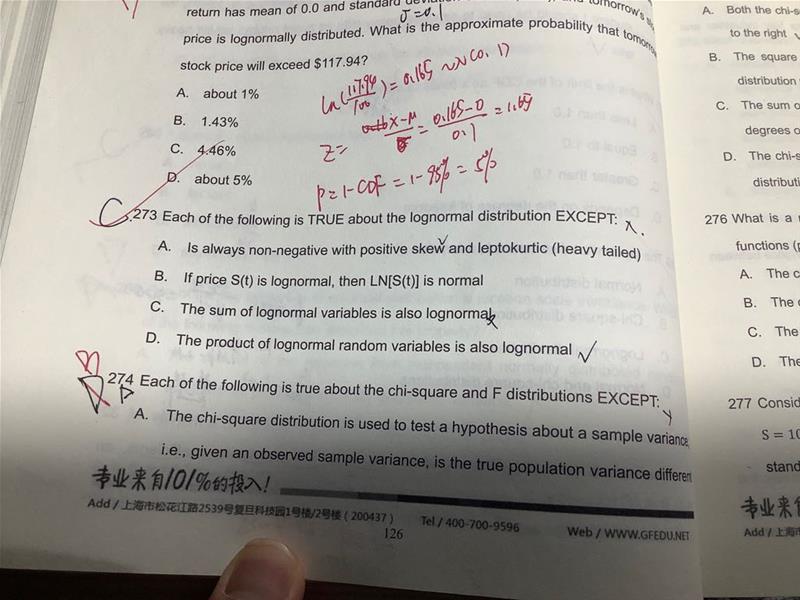 return has mean of 0.0 and standard
σ=0.1
tomorrow's
price is lognormally distributed. What is the approximate probability that
stock price will exceed $117.94?
A. about 1%
B. 1.43%
C. 4.46%
D. about 5%
ln(117.94/100)=0.165 ~N(0.1)
Z= X-μ/σ = 0.165-0/0.1 =1.65
P=1-CDF=1-95%=5%
C
273 Each of the following is TRUE about the lognormal distribution EXCEPT:
A. Is always non-negative with positive skew and leptokurtic (heavy tailed)
B. If price S(t) is lognormal, then LN[S(t)] is normal
C. The sum of lognormal variables is also lognormal
D. The product of lognormal random variables is also lognormal ✓
274 Each of the following is true about the chi-square and F distributions EXCEPT:
A. The chi-square distribution is used to test a hypothesis about a sample variance,
i.e., given an observed sample variance, is the true population variance different
专业来自101%的投入!
Add / 上海市松花江路2539号复旦科技园1号楼/2号楼 ( 200437 ) Tel / 400-700-9596 Web / WWW.GFEDU.NET
126
A. Both the
to the right
B. The square
distribution
C. The sum o
degrees o
D. The
276 What is a
functions
A. The
B. The
C. The
D. The
277
S = 10
专业来
Add /